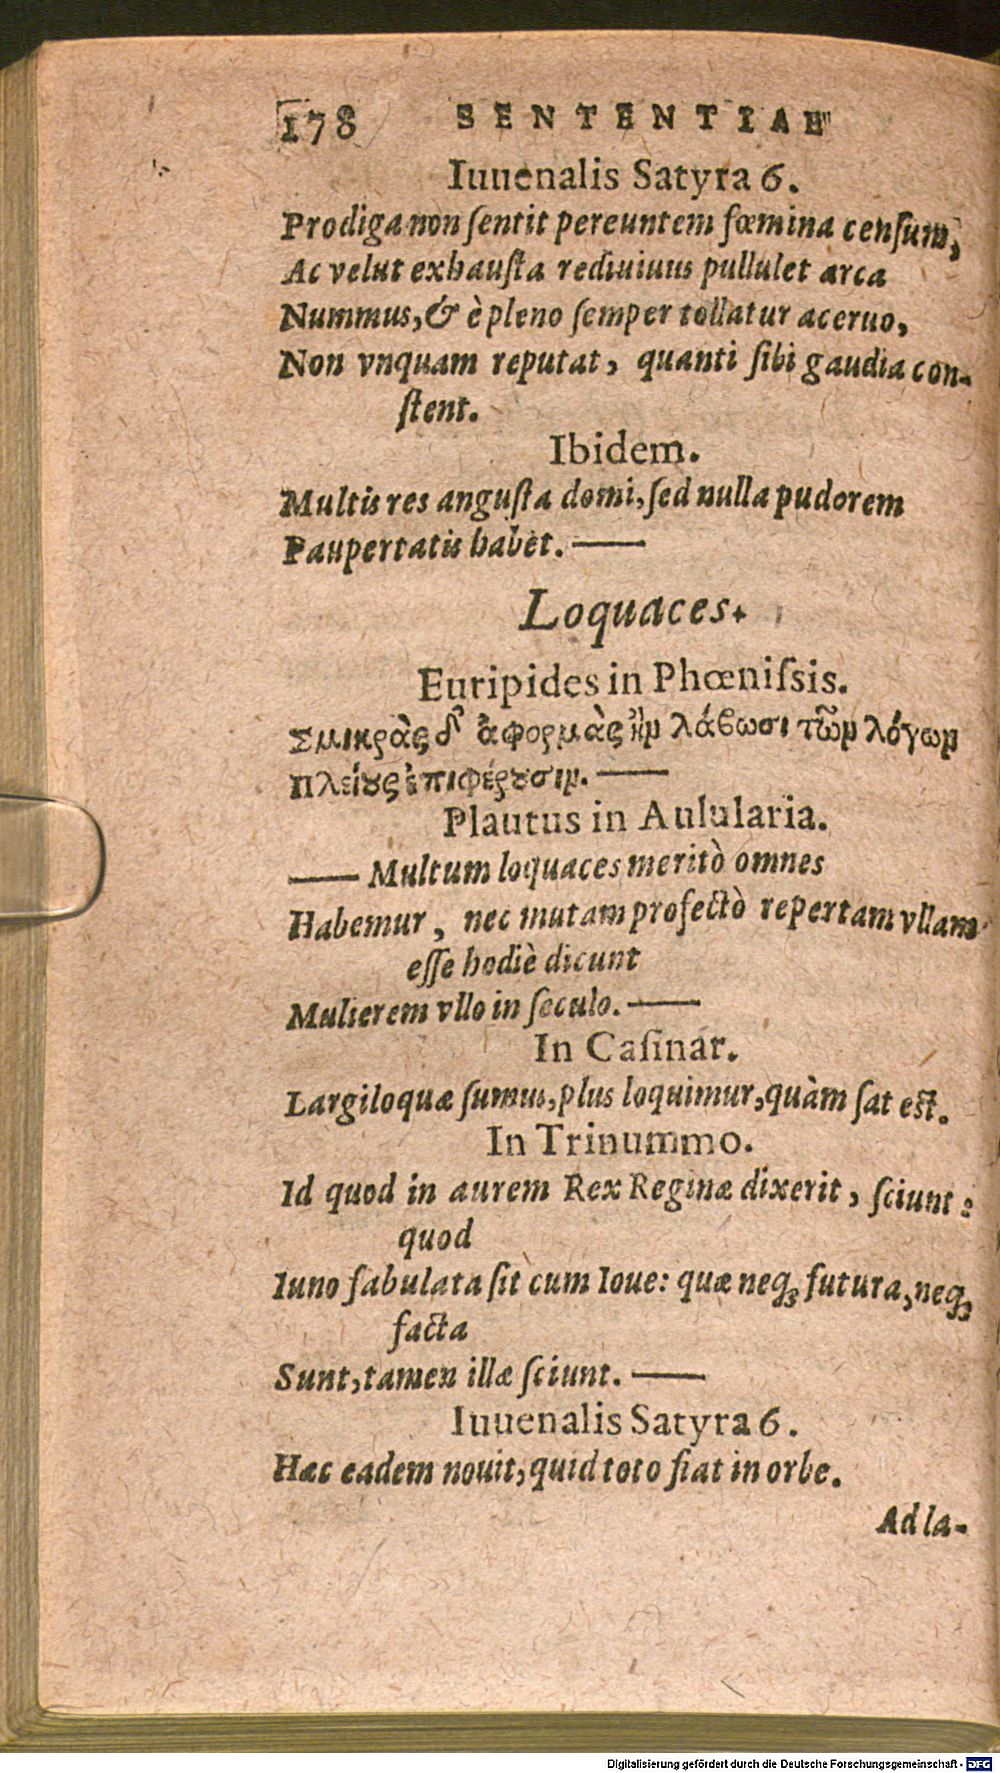 178 SENTENTIAE
Iuuenalis Satyra 6.
Prodiga non ſentit pereuntem fœmina cenſum,
Ac velut exhauſta rediuiuus pullulet arca
Nummus, & è pleno ſemper tollatur aceruo,
Non vnquam reputat, quanti ſibi gaudia con-
ſtent.
Ibidem.
Multis res anguſta domi, ſed nulla pudorem
Paupertatis habet. ——
Loquaces.
Euripides in Phœniſsis.
Σμικρὰς δ' ἀφορμὰς ἢν λάβωσι τῶν λόγων
Πλείους ἐπιφέρουσιν. ——
Plautus in Aulularia.
—— Multum loquaces meritò omnes
Habemur, nec mutam profectò repertam vllam
eſſe hodiè dicunt
Mulierem vllo in ſeculo. ——
In Caſinar.
Largiloquæ ſumus, plus loquimur, quàm ſat est.
In Trinummo.
Id quod in aurem Rex Reginæ dixerit, ſciunt:
quod
Iuno fabulata ſit cum Ioue: quæ neq; futura, neq;
facta
Sunt, tamen illæ ſciunt. ——
Iuuenalis Satyra 6.
Hæc eadem nouit, quid toto fiat in orbe.
Ad la-
Digitalisierung gefördert durch die Deutsche Forschungsgemeinschaft - DFG